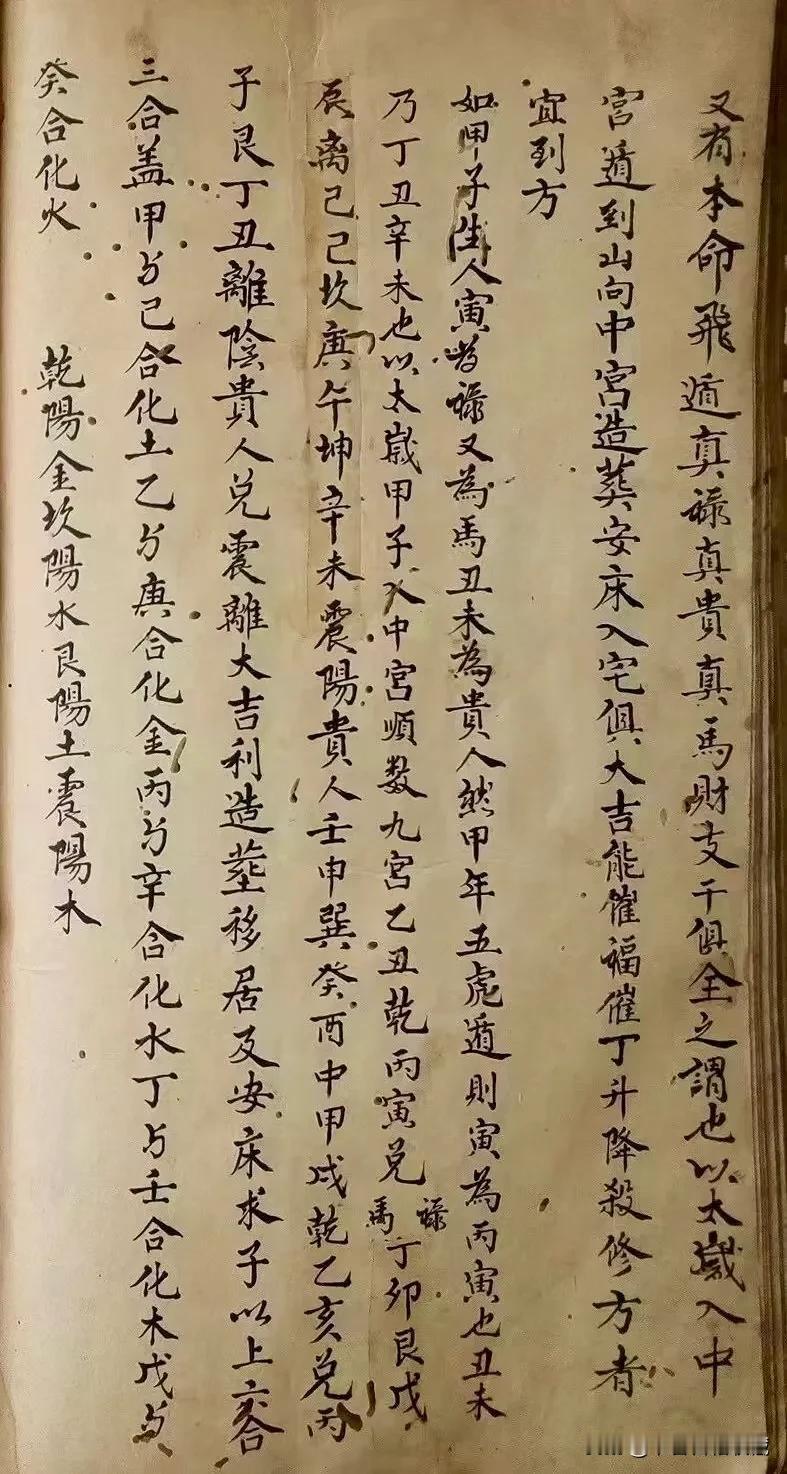 又有本命飛遁真祿真貴真馬財支干俱全之謂也以太歲入中
宮遁到山向中宮造葬安床入宅俱大吉能催福催丁升降殺修方者
宜到方
如甲子生人寅為祿又為馬丑未為貴人然甲年五虎遁則寅為丙寅也丑未
乃丁丑辛未也以太歲甲子入中宮順数九宮乙丑乾丙寅兌祿馬丁卯艮戊
辰离己巳坎庚午坤辛未震陽貴人壬申巽癸酉中甲戌乾乙亥兌丙
子艮丁丑離陰貴人兌震離大吉利造塟移居及安床求子以上六合
三合盖甲与己合化土乙与庚合化金丙与辛合化水丁与壬合化木戊与
癸合化火 乾陽金坎陽水艮陽土震陽木